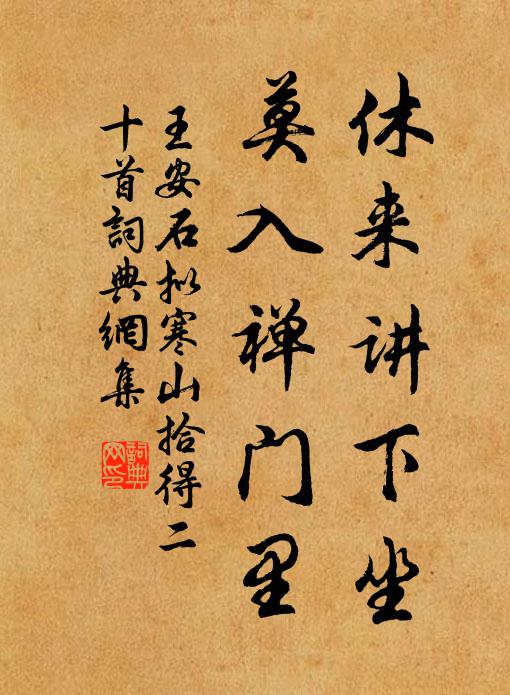 休来讲下坐
莫入禅门里
王安石拟寒山拾得二
十首詞典網集
詞典
网印